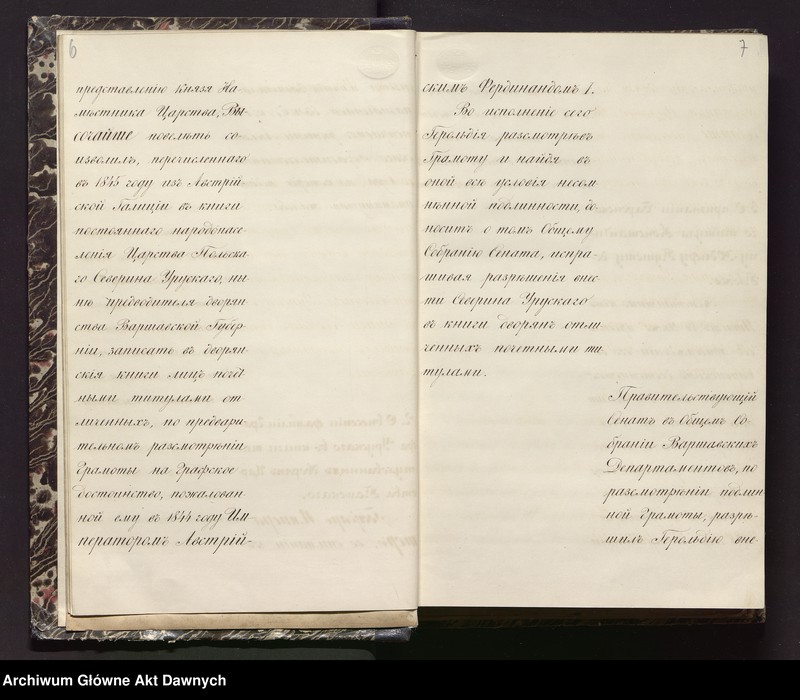 6
представленію Князя На-
мѣстника Царства, Вы-
сочайше повелѣть со-
изволилъ, перечисленнаго
въ 1845 году изъ Австрій-
ской Галиціи въ книги
постояннаго народонасе-
ленія Царства Польска
го Северина Урускаго, ны-
нѣ предводителя дворян-
ства Варшавской Губер-
ніи, записать въ дворян-
скія книги лицъ почёт
ными титулами от
личенныхъ, по предвари-
тельномъ разсмотрѣніи
Грамоты на Графское
достоинство, пожалован-
ной ему въ 1844 году Им-
ператоромъ Австрій-
7
скимъ Фердинандомъ I.
Во исполненіе сего
Герольдія разсмотрѣвъ
Грамоту и найдя въ
оной всю условія несом
нѣнной подлинности, до-
носитъ о томъ Общему
Собранію Сената, испра
шивая разрѣшенія внес
ти Северина Урускаго
въ книги дворянъ отли
ченныхъ почетными ти-
тулами.
Правительствующій
Сенатъ въ Общемъ Со-
браніи Варшавскихъ
Департаментовъ, по
разсмотрѣніи подлин-
ной Грамоты, разрѣ-
шилъ Герольдію вне-
Archiwum Główne Akt Dawnych